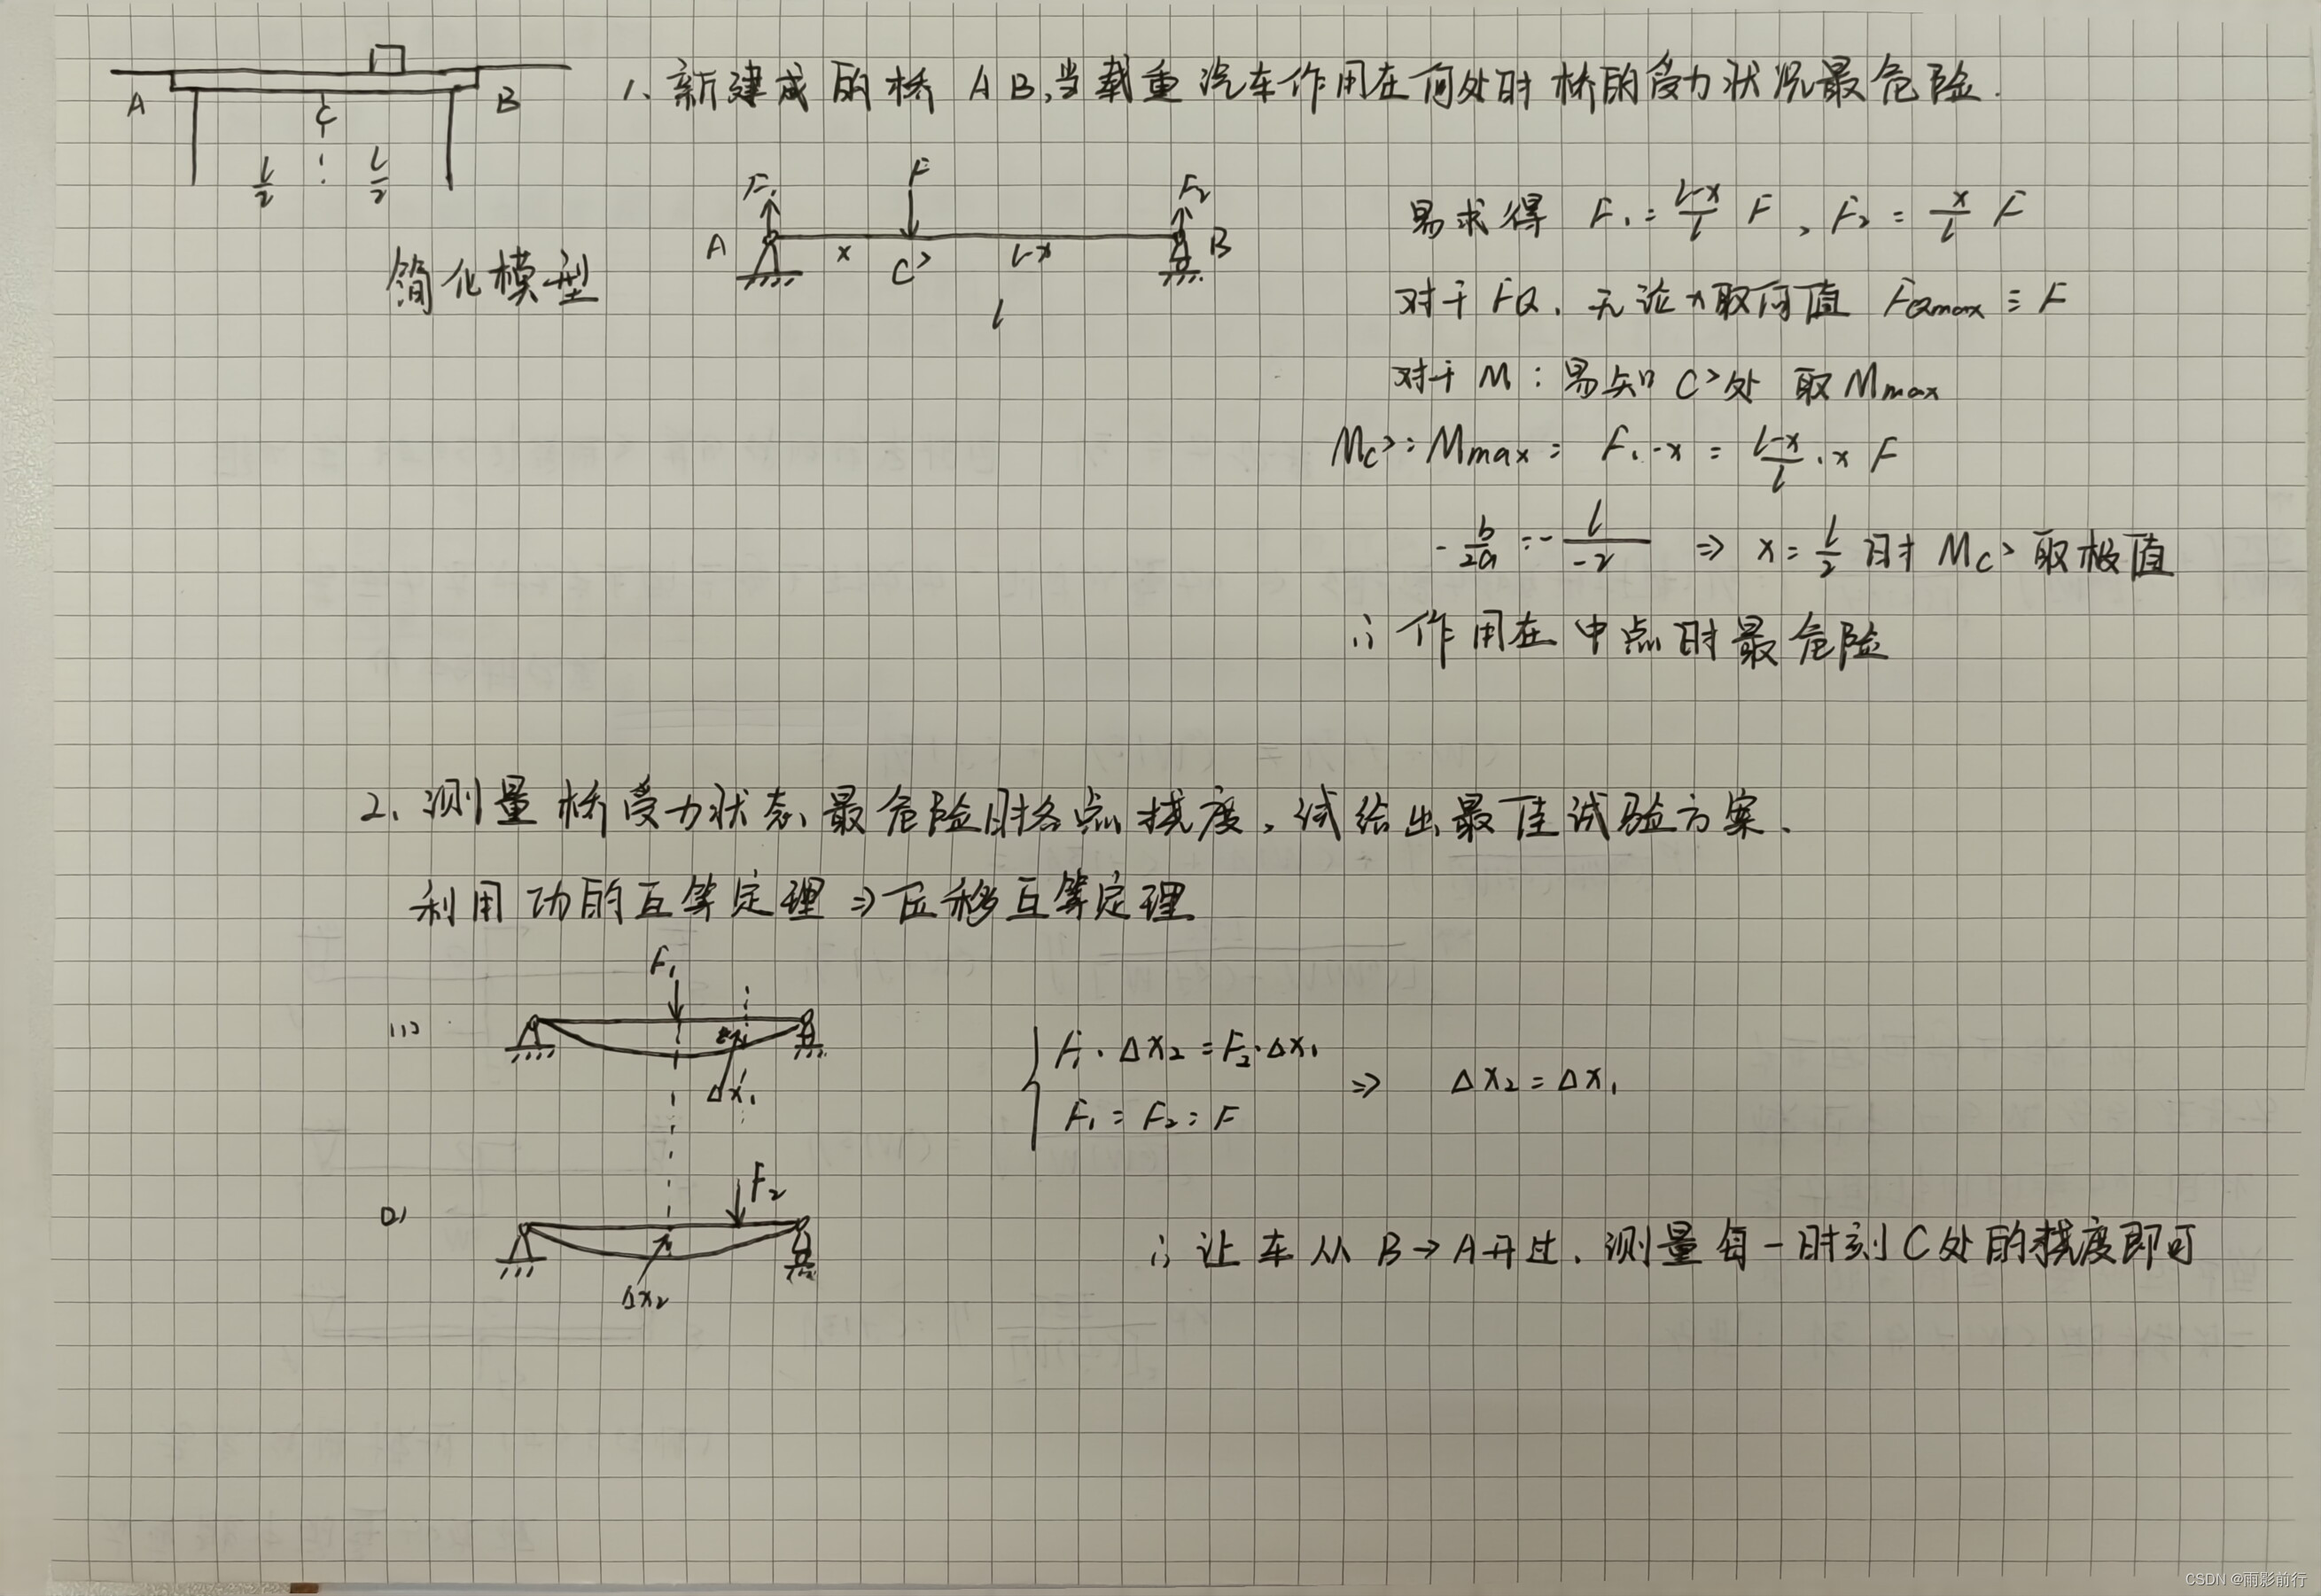 A B C
l/2 l/2
1、新建成的桥 AB,当载重汽车作用在何处时桥的受力状况最危险.
简化模型
F₁ F F₂
A x C' l-x B
l
易求得 F₁ = (l-x)/l F , F₂ = x/l F
对于 FQ, 无论x取何值 FQmax ≡ F
对于 M : 易知 C'处 取 Mmax
Mc' = Mmax = F₁·x = (l-x)/l · x F
-b/2a = -l/-2 ⇒ x = l/2 时 Mc' 取极值
∴ 作用在中点时最危险
2、测量桥受力状态最危险时各点挠度,试给出最佳试验方案.
利用功的互等定理 ⇒ 位移互等定理
(1) F₁
Δx₁
F₁·Δx₂ = F₂·Δx₁
F₁ = F₂ = F
⇒ Δx₂ = Δx₁
(2) F₂
Δx₂
∴ 让车从 B→A开过,测量每一时刻C处的挠度即可
CSDN @雨影前行